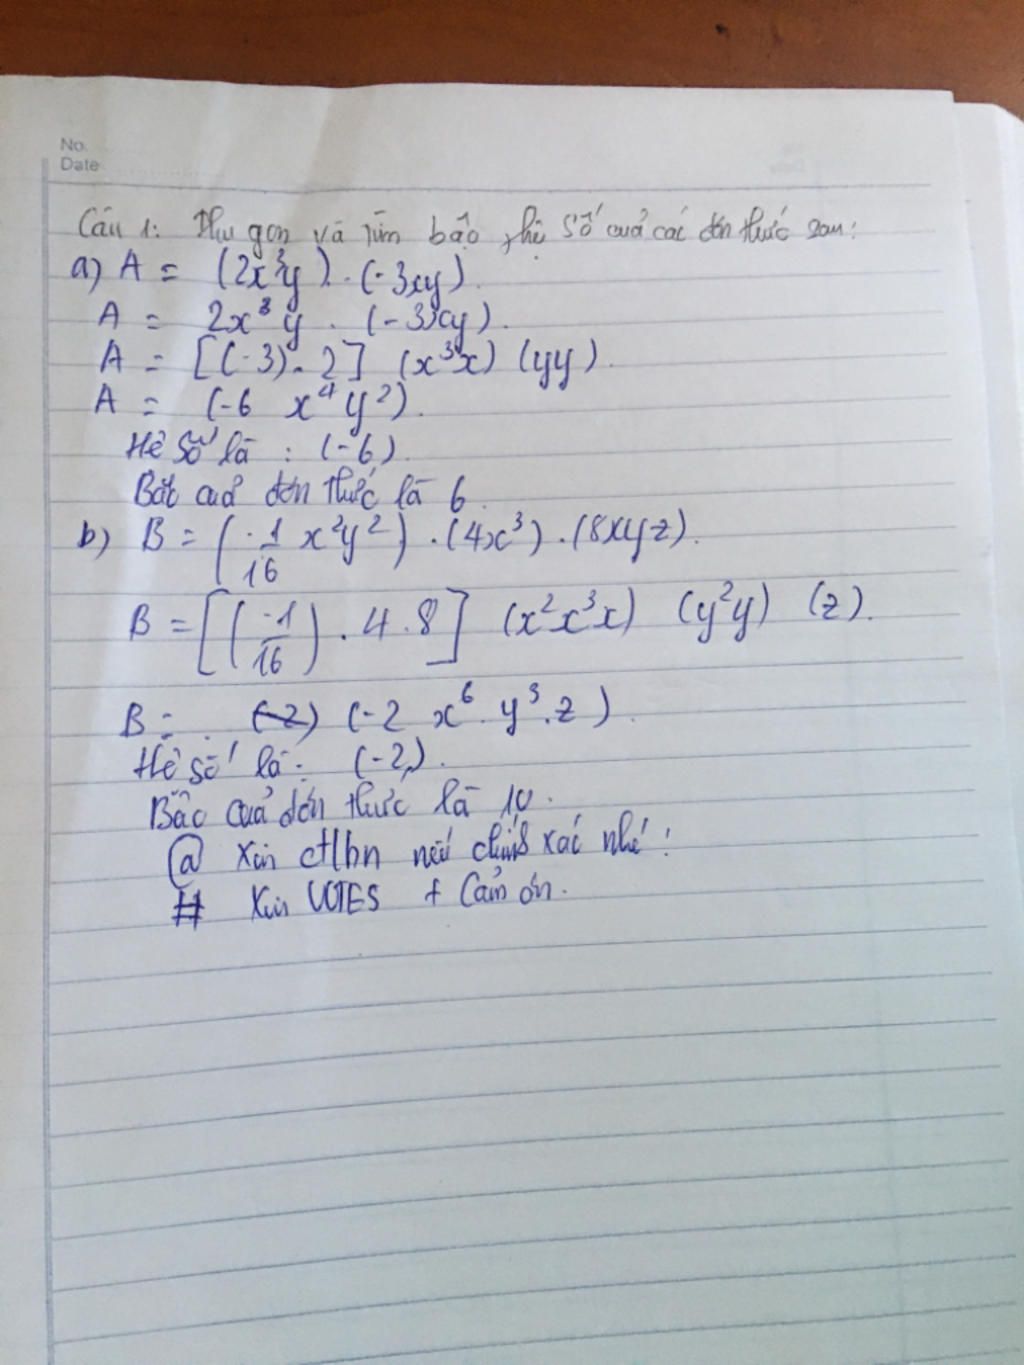 No.
Date
Câu 1: Thu gọn và tìm bậo, hệ số cuả các đơn thức sau:
a) A = (2x³y). (-3xy).
A = 2x³y. (-3xy).
A = [(-3). 2] (x³x) (yy).
A = (-6 x⁴y²).
Hê số là : (-6).
Bât cuả đơn thức là 6.
b) B = (-1/16 x²y²) .(4x³) .(8xyz).
B = [(-1/16) . 4 . 8] (x²x³x) (y²y) (z).
B = . (-2) (-2 x⁶. y³.z).
Hê số là: (-2).
Bậc cuả đơn thức là 10.
@ Xin ctlhn nếu chính xác nhé!
# Xin VOTES + Cảm ơn.